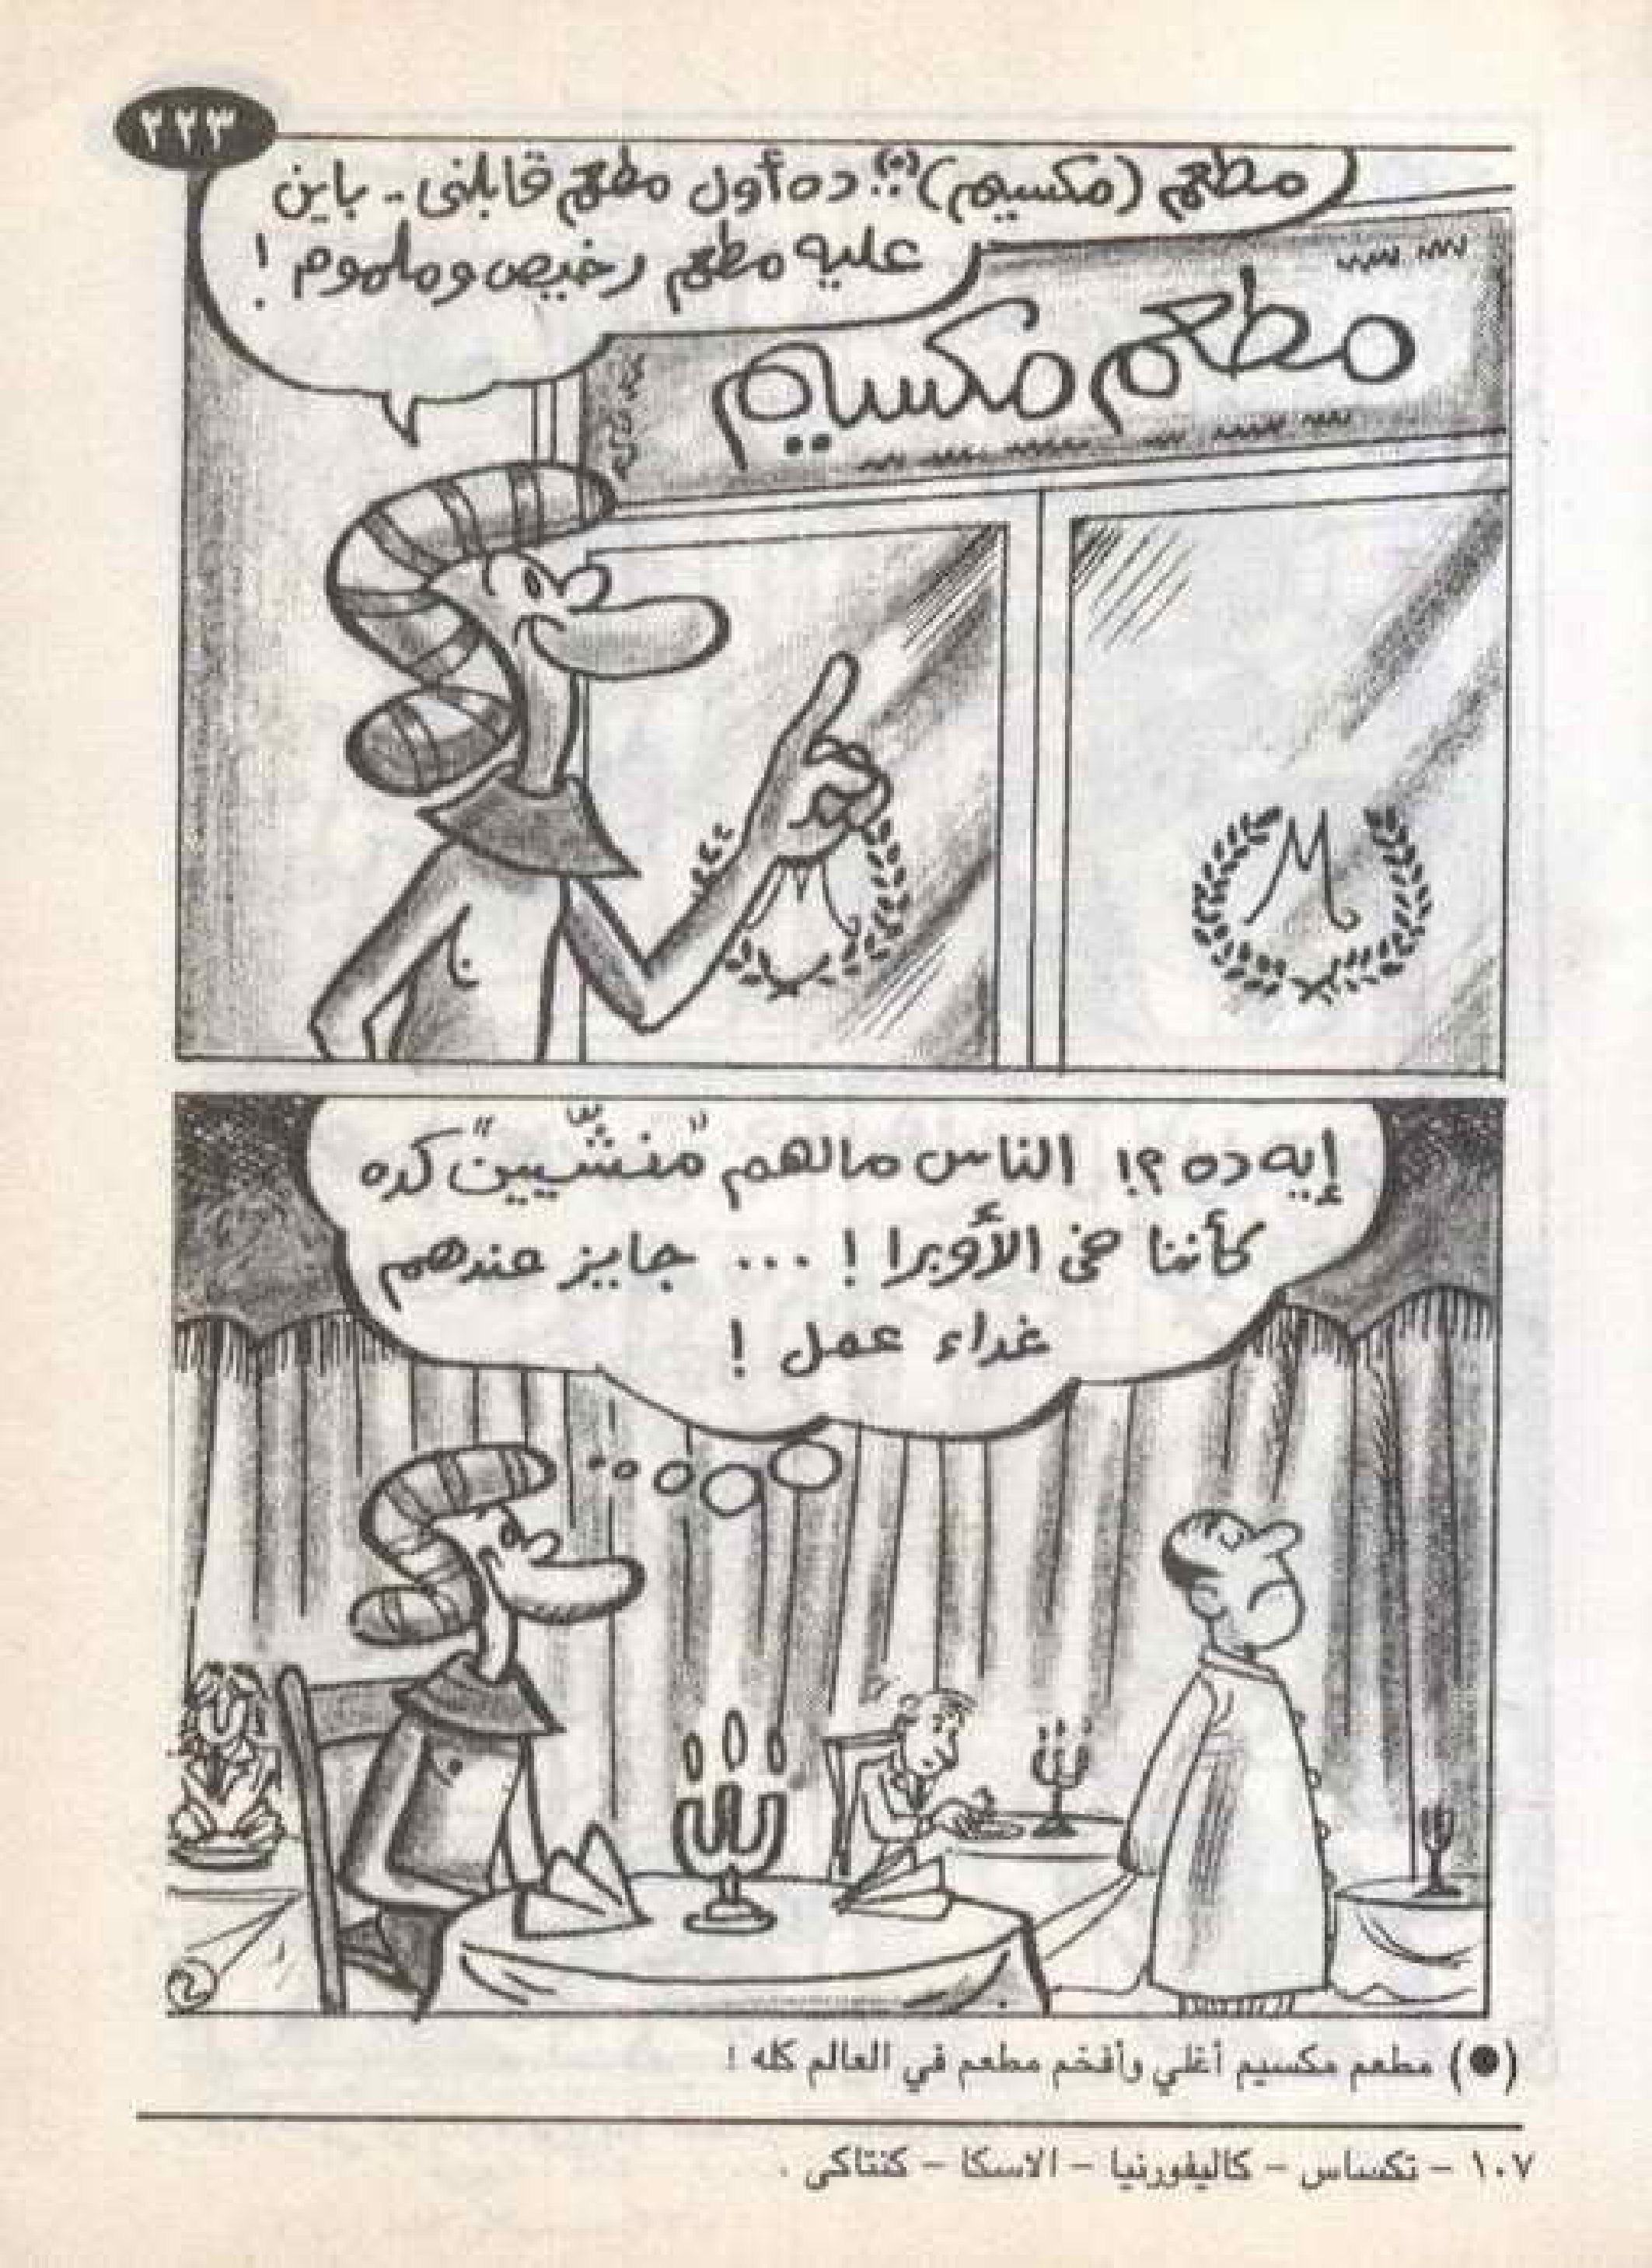 ٢٢٣
مطعم (مكسيم)(•)؟! ده أول مطعم قابلنى - باين
عليه مطعم رخيص وملموم !
مطعم مكسيم
M
إيه ده ؟! الناس مالهم "منشّيين" كده
كأننا فى الأوبرا ! ... جايز عندهم
غداء عمل !
(●) مطعم مكسيم أغلي وأفخم مطعم في العالم كله !
١٠٧ - تكساس - كاليفورنيا - الاسكا - كنتاكى .